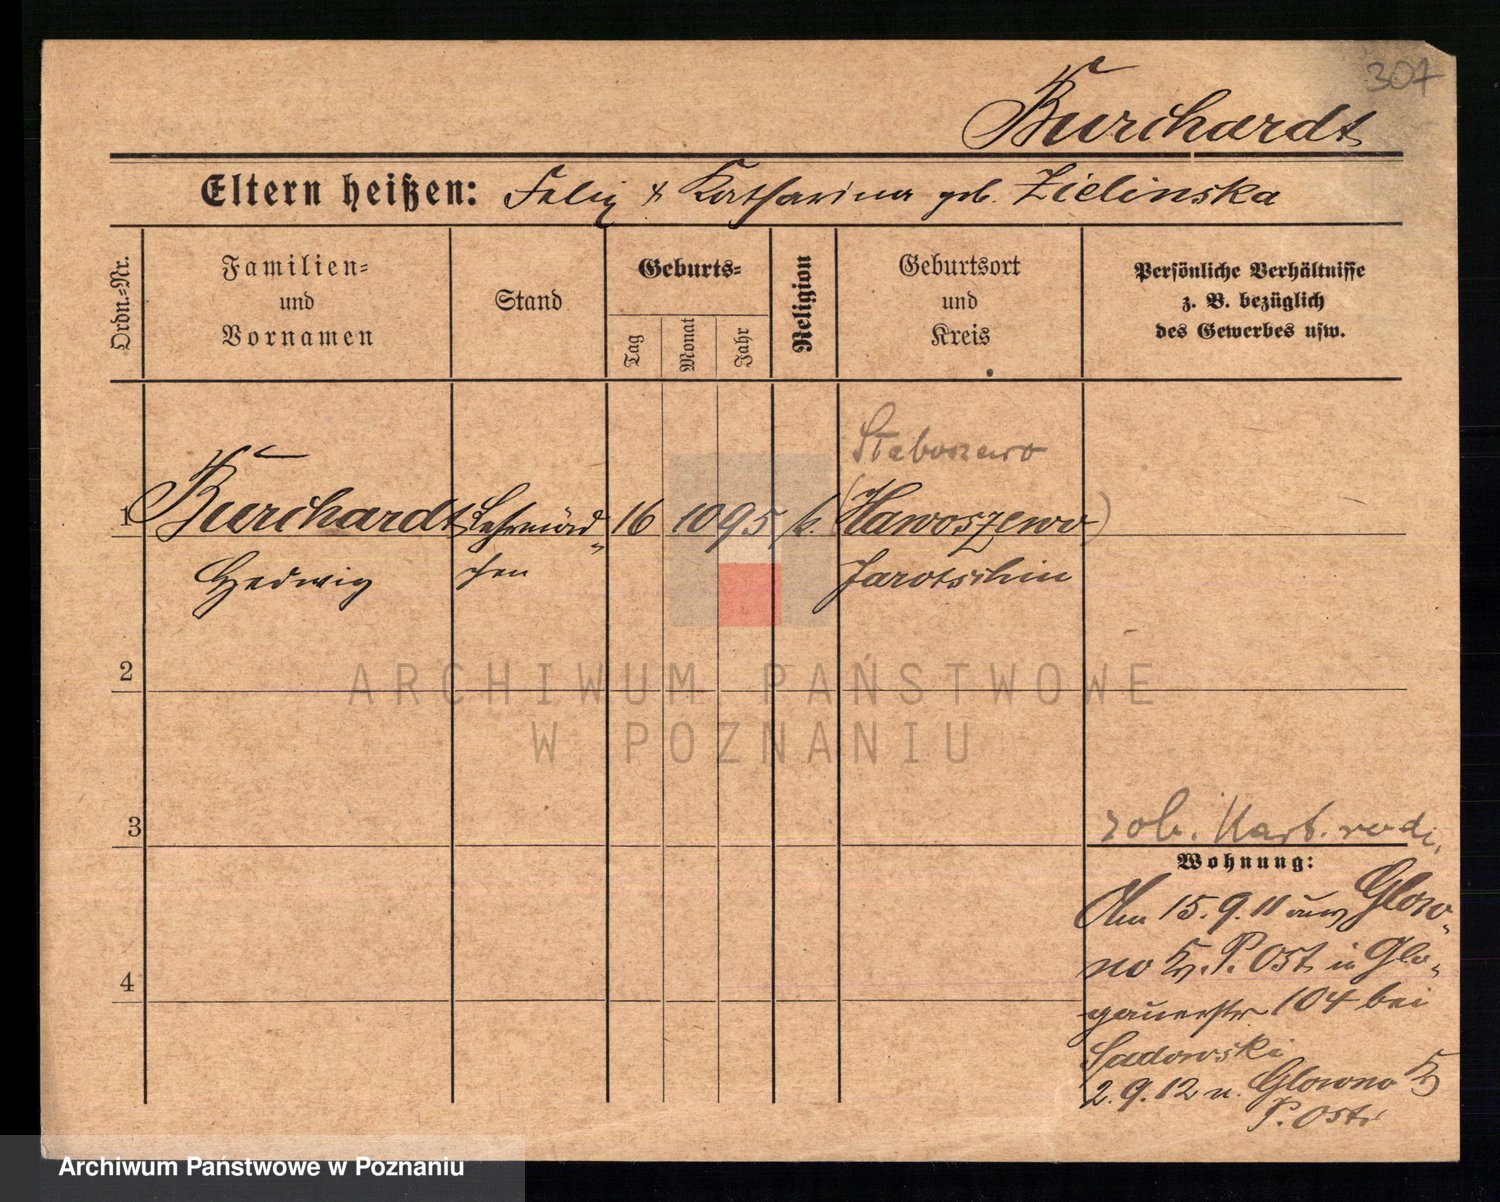 307
Burchardt
Eltern heißen: Felix & Katharina geb. Zielinska
Ordn.=Nr.
Familien=
und
Vornamen
Stand
Geburts=
Tag
Monat
Jahr
Religion
Geburtsort
und
Kreis
Persönliche Verhältnisse
z. B. bezüglich
des Gewerbes usw.
1
Burchardt
Hedwig
Lehrmäd-
chen
16
10
95
k.
Steboszewo
(Hawoszewo)
Jarotschin
2
3
4
zob.
Wohnung:
Am 15.9.11 aus Glow-
no Kr. P. Ost in Glo-
gauerstr 104 bei
Sadowski
2.9.12 n. Glowno Kr
P. Ost.
ARCHIWUM PAŃSTWOWE
W POZNANIU
Archiwum Państwowe w Poznaniu